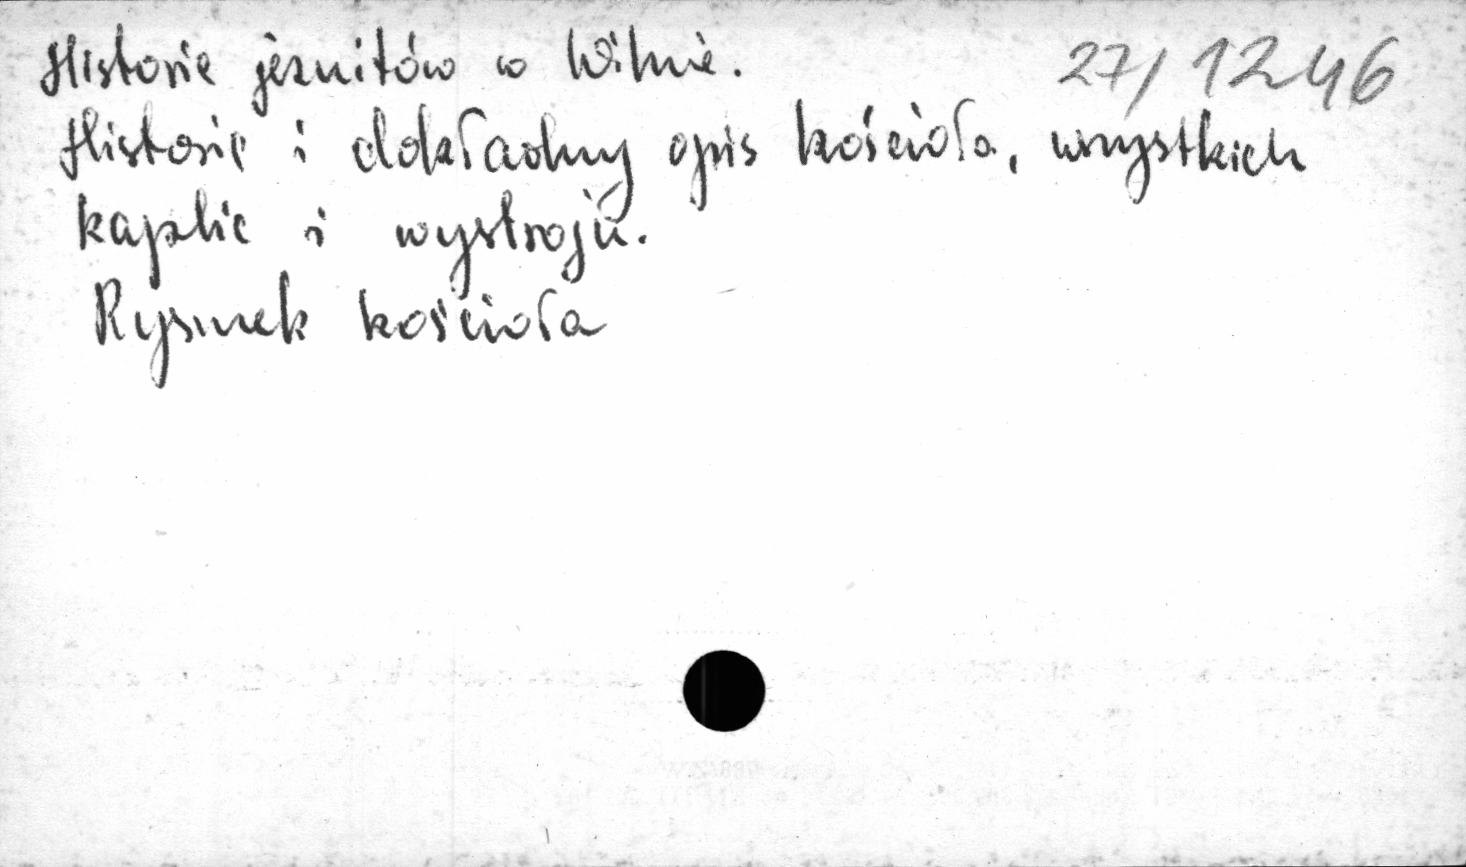 Historie jezuitów w Wilnie. 27/1246
Historie i dokładny opis kościoła, wszystkich
kaplic i wystroju.
Rysunek kościoła